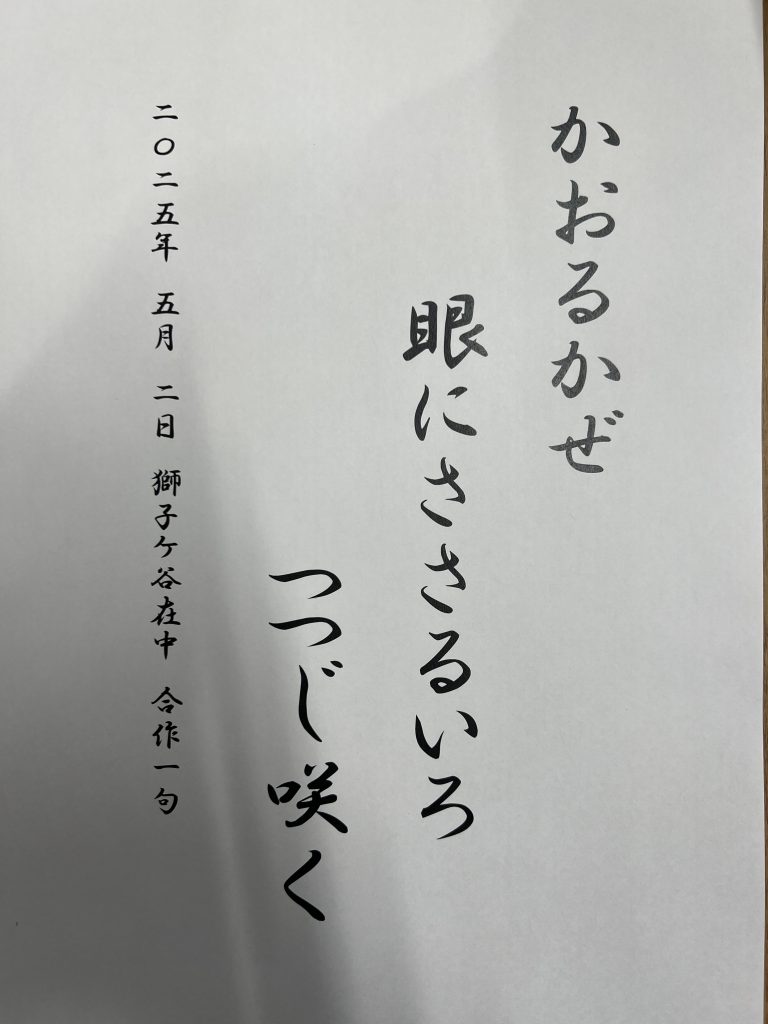 かおるかぜ
眼にささるいろ
つつじ咲く
二〇二五年 五月 二日 獅子ケ谷在中 合作一句